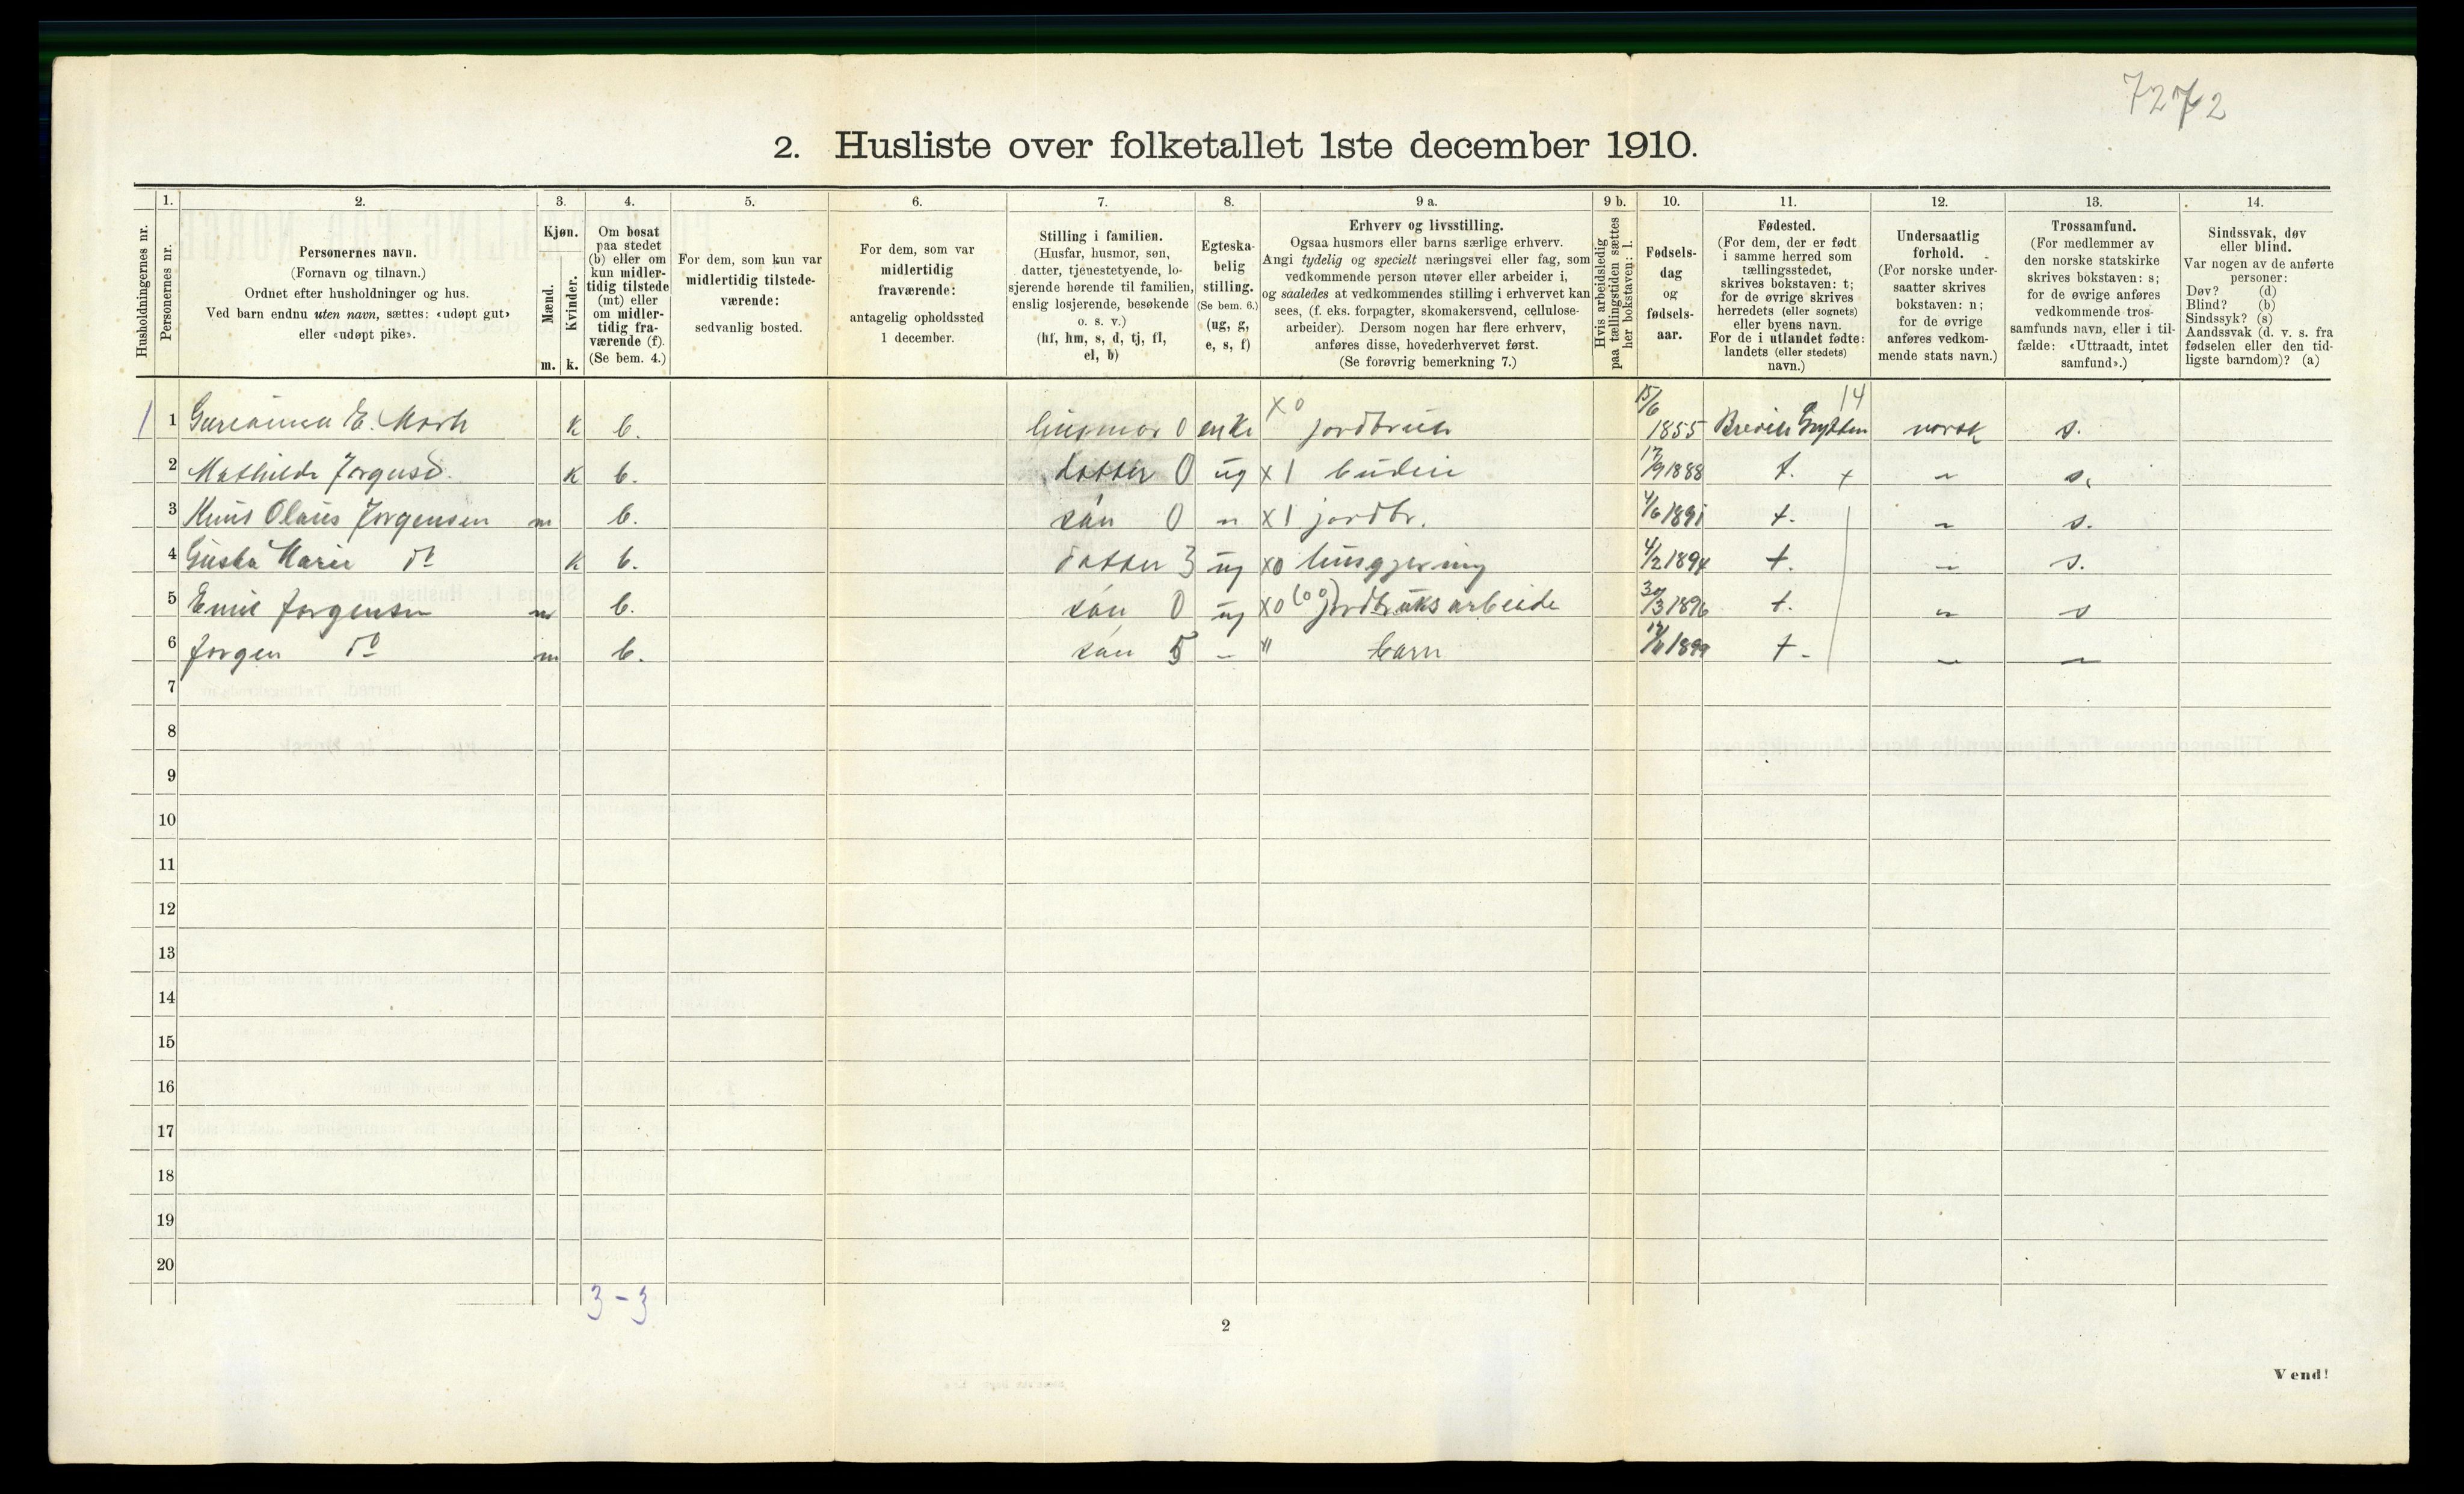 7272
2. Husliste over folketallet 1ste december 1910.
Husholdningernes nr.
1.
Personernes nr.
2.
Personernes navn.
(Fornavn og tilnavn.)
Ordnet efter husholdninger og hus.
Ved barn endnu uten navn, sættes: «udøpt gut»
eller «udøpt pike».
3.
Kjøn.
Mænd.
Kvinder.
m. k.
4.
Om bosat
paa stedet
(b) eller om
kun midler-
tidig tilstede
(mt) eller
om midler-
tidig fra-
værende (f).
(Se bem. 4.)
5.
For dem, som kun var
midlertidig tilstede-
værende:
sedvanlig bosted.
6.
For dem, som var
midlertidig
fraværende:
antagelig opholdssted
1 december.
7.
Stilling i familien.
(Husfar, husmor, søn,
datter, tjenestetyende, lo-
sjerende hørende til familien,
enslig losjerende, besøkende
o. s. v.)
(hf, hm, s, d, tj, fl,
el, b)
8.
Egteska-
belig
stilling.
(Se bem. 6.)
(ug, g,
e, s, f)
9 a.
Erhverv og livsstilling.
Ogsaa husmors eller barns særlige erhverv.
Angi tydelig og specielt næringsvei eller fag, som
vedkommende person utøver eller arbeider i,
og saaledes at vedkommendes stilling i erhvervet kan
sees, (f. eks. forpagter, skomakersvend, cellulose-
arbeider). Dersom nogen har flere erhverv,
anføres disse, hovederhvervet først.
(Se forøvrig bemerkning 7.)
9 b.
Hvis arbeidsledig
paa tællingstiden sættes
her bokstaven: l.
10.
Fødsels-
dag
og
fødsels-
aar.
11.
Fødested.
(For dem, der er født
i samme herred som
tællingsstedet,
skrives bokstaven: t;
for de øvrige skrives
herredets (eller sognets)
eller byens navn.
For de i utlandet fødte:
landets (eller stedets)
navn.)
12.
Undersaatlig
forhold.
(For norske under-
saatter skrives
bokstaven: n;
for de øvrige
anføres vedkom-
mende stats navn.)
13.
Trossamfund.
(For medlemmer av
den norske statskirke
skrives bokstaven: s;
for de øvrige anføres
vedkommende tros-
samfunds navn, eller i til-
fælde: «Uttraadt, intet
samfund».)
14.
Sindssvak, døv
eller blind.
Var nogen av de anførte
personer:
Døv? (d)
Blind? (b)
Sindssyk? (s)
Aandssvak (d. v. s. fra
fødselen eller den tid-
ligste barndom)? (a)
1 1 E. k b. husmor 0 enke x0 jordbruk 15/6 1855 14 norsk s.
2 Mathilde Jørgensd. k b. datter 0 ug x1 budeie 17/9 1888 t. + " s.
3 Knut Olaus Jørgensen m b. søn 0 " x1 jordbr. 4/6 1891 t. " s.
4 Marie do k b. datter 3 ug x0 husgjerning 4/2 1894 t. " s.
5 Emil Jørgensen m b. søn 0 ug x0 (00) jordbruksarbeide 30/3 1896 t. " s
6 Jørgen do m b. søn 5 - " barn 1899 t. " "
7
8
9
10
11
12
13
14
15
16
17
18
19
20
3-3
2
Vend!